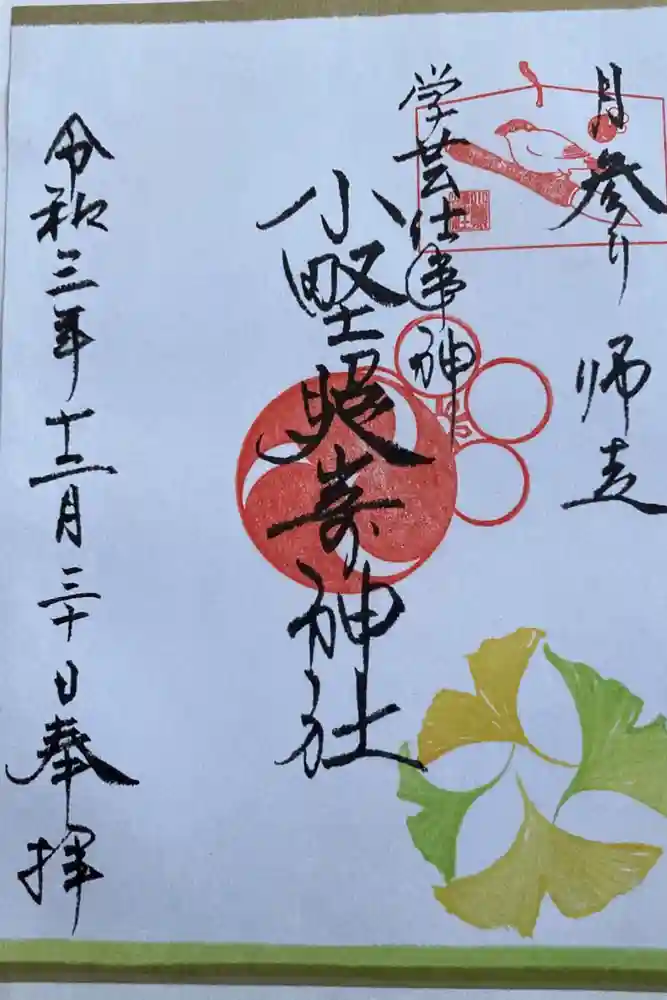 月参り 師走
学芸仕事神
小野照崎神社
令和三年十二月三十日奉拝